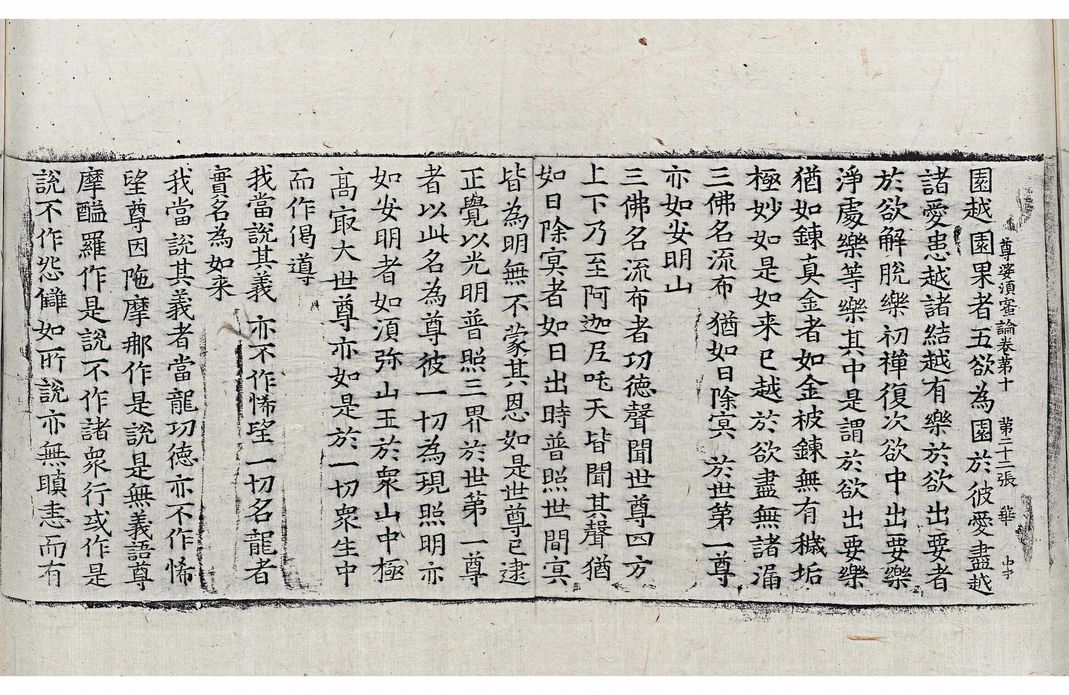 尊婆須蜜論卷第十 第二十二張 華
園越園果者五欲為園於彼愛盡越
諸愛患越諸結越有樂於欲出要者
於欲解脫樂初禪復次欲中出要樂
淨處樂等樂其中是謂於欲出要樂
猶如鍊真金者如金被鍊無有穢垢
極妙如是如来已越於欲盡無諸漏
三佛名流布 猶如日除冥 於世第一尊
亦如安明山
三佛名流布者功德聲聞世尊四方
上下乃至阿迦尼吒天皆聞其聲猶
如日除冥者如日出時普照世間冥
皆為明無不蒙其恩如是世尊已逮
正覺以光明普照三界於世第一尊
者以此名為尊彼一切為現照明亦
如安明者如須弥山王於衆山中極
高㝡大世尊亦如是於一切衆生中
而作偈導
我當說其義 亦不作悕望 一切名龍者
實名為如来
我當說其義者當龍功德亦不作悕
望尊因陁摩那作是說是無義語尊
摩醯羅作是說不作諸衆行或作是
說不作怨讎如所說亦無瞋恚而有